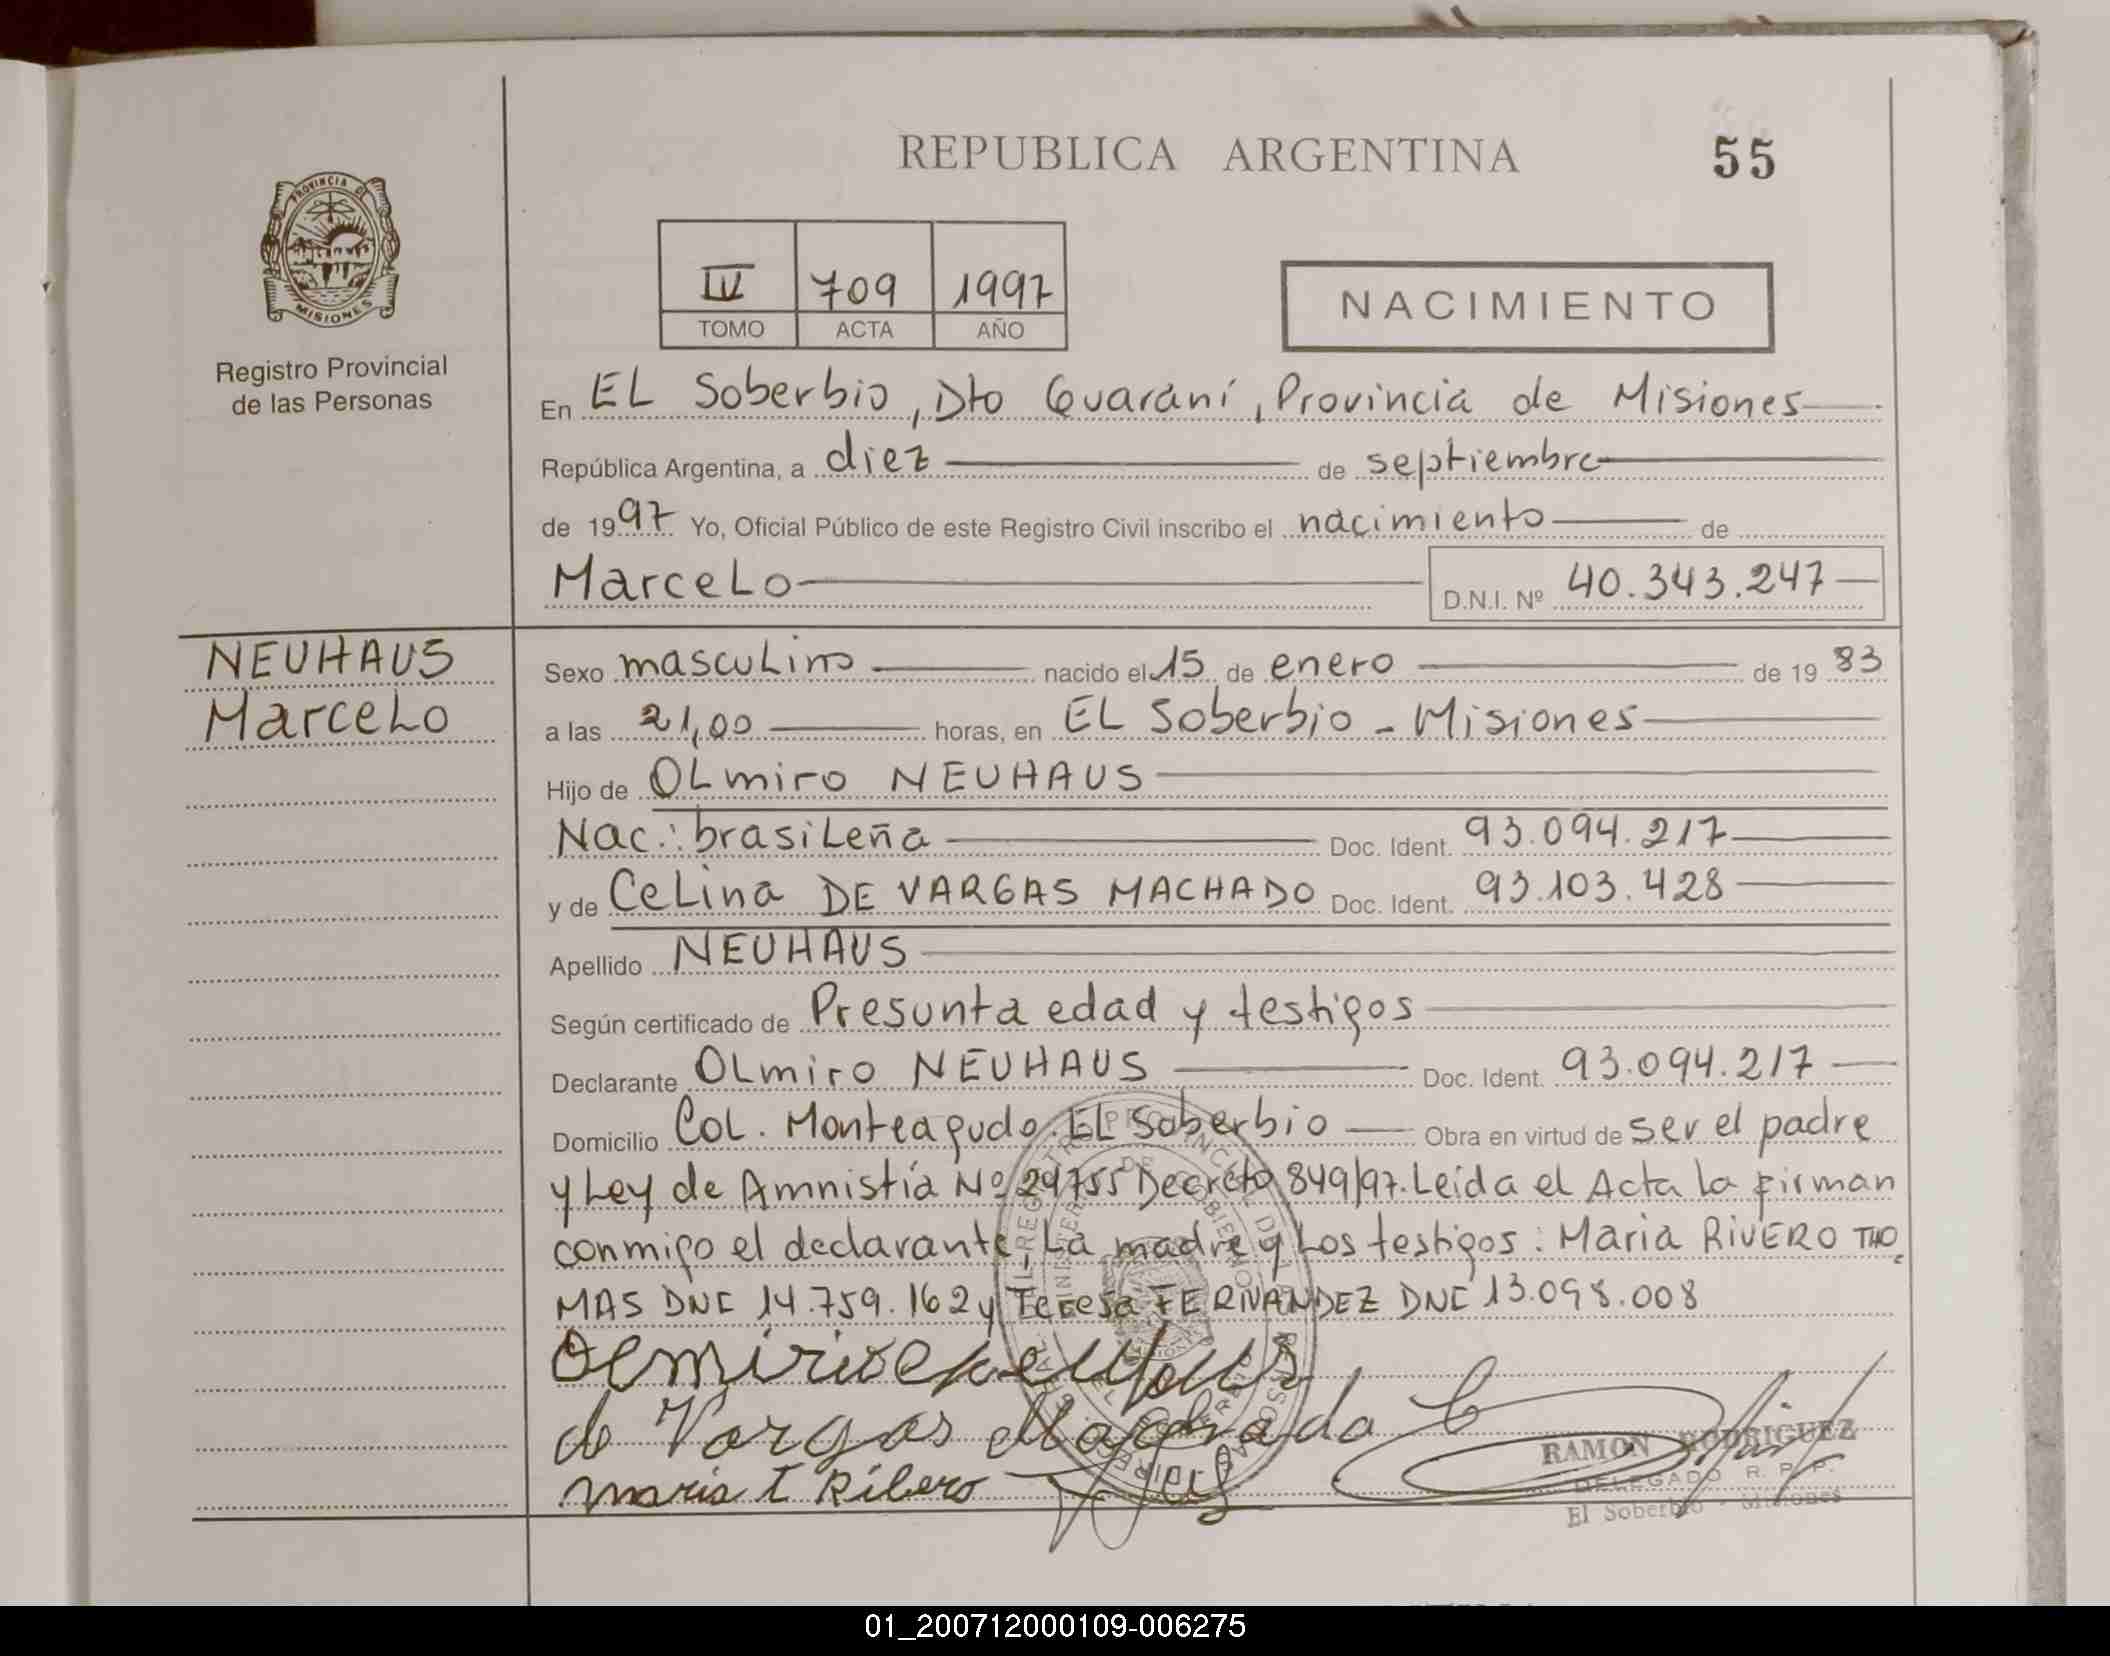 REPUBLICA ARGENTINA
55
PROVINCIA DE
MISIONES
Registro Provincial
de las Personas
IV 709 1997
TOMO ACTA AÑO
NACIMIENTO
En EL Soberbio, Dto Guaraní, Provincia de Misiones
República Argentina, a diez de septiembre
de 1997 Yo, Oficial Público de este Registro Civil inscribo el nacimiento de
Marcelo D.N.I. Nº 40.343.247
NEUHAUS
Marcelo
Sexo masculino nacido el 15 de enero de 1983
a las 21,00 horas, en EL Soberbio - Misiones
Hijo de OLmiro NEUHAUS
Nac.: brasileña Doc. Ident. 93.094.217
y de Celina DE VARGAS MACHADO Doc. Ident. 93.103.428
Apellido NEUHAUS
Según certificado de Presunta edad y testigos
Declarante OLmiro NEUHAUS Doc. Ident. 93.094.217
Domicilio Col. Monteagudo. EL Soberbio Obra en virtud de ser el padre
y Ley de Amnistía Nº 24755 Decreto 849/97. Leída el Acta la firman
conmigo el declarante, La madre y Los testigos: Maria RIVERO THO
MAS DNI 14.759.162 y Teresa FERNANDEZ DNI 13.098.008
de Vargas Machado C
maria T Ribero
RAMON RODRIGUEZ
DELEGADO R. P. P.
El Soberbio - Misiones
01_200712000109-006275